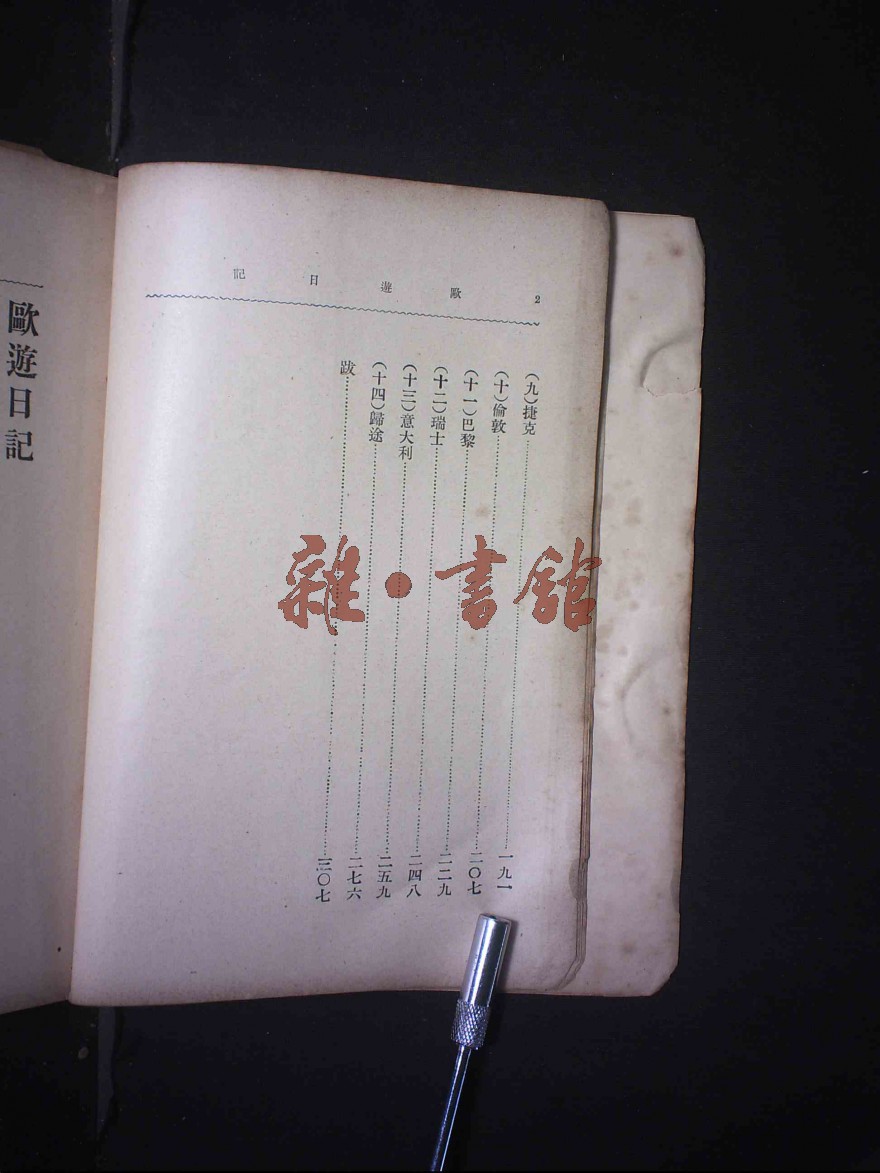 2 歐遊日記
(九)捷克……一九一
(十)倫敦……二〇七
(十一)巴黎……二二九
(十二)瑞士……二四八
(十三)意大利……二五九
(十四)歸途……二七六
跋……三〇七
歐遊日記
雜·書館